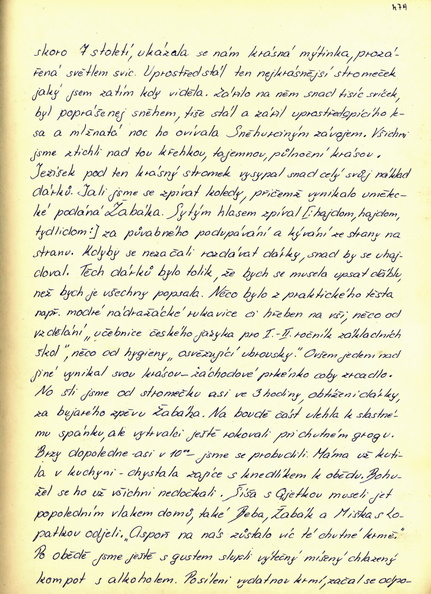 474
skoro 7 století, ukázala se nám krásná mýtinka, prozá-
řená světlem svic. Uprostřed stál ten nejkrásnější stromeček
jaký jsem zatím kdy viděla. Zářilo na něm snad tisíc sviček,
byl poprášenej sněhem, tiše stál a zářil uprostřed tichého le-
sa a mlžnatá noc ho ovívala Sněhurčiným závojem. Všichni
jsme ztichli nad tou křehkou, tajemnou, půlnoční krásou.
Ježíšek pod ten krásný stromek vysypal snad celý svůj náklad
dárků. Jali jsme se zpívat koledy, přičemž vynikalo umělec-
ké podání Žabáka. Sytým hlasem zpíval [:hajdom, hajdom,
tydlidom:] za půvabného podupávání a kývání ze strany na
stranu. Kdyby se nezačali rozdávat dárky, snad by se uhaj-
doval. Těch dárků bylo tolik, že bych se musela upsat ďáblu,
než bych je všechny popsala. Něco bylo z praktického těsta
např. modré nádražácké rukavice či hřeben na vši, něco od
vzdělání „učebnice českého jazyka pro I.-II. ročník základních
škol", něco od hygieny „osvěžující ubrousky". Ovšem jeden nad
jiné vynikal svou krásou - záchodové prkénko coby zrcadlo.
No šli jsme od stromečku asi ve 3 hodiny, obtíženi dárky,
za bujarého zpěvu Žabáka. Na boudě část ulehla k šťastné-
mu spánku, ale vytrvalci ještě rokovali při chutném grogu.
Brzy dopoledne - asi v 10°° jsme se probudili. Máma už kuti-
la v kuchyni - chystala zajíce s knedlíkem k obědu. Bohu-
žel se ho už všichni nedočkali. Šíša s Cvetkou museli jet
popoledním vlakem domů, také Beba, Žabák a Miška s Lo-
patkou odjeli. „Aspoň na nás zůstalo víc té chutné krmě."
Po obědě jsme ještě s gustem slupli výtečný míšený chlazený
kompot s alkoholem. Posíleni vydatnou krmí, začal se odpo-